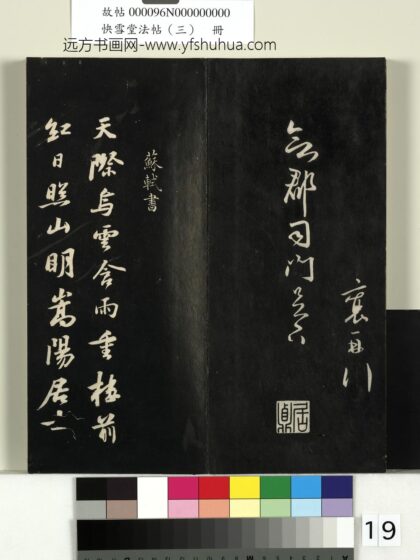 故帖 000096N000000000
快雪堂法帖（三） 冊
远方书画网-www.yfshuhua.com
襄
郡司門足下
蘇軾書
天際烏雲含雨重樓前
紅日照山明嵩陽居士
19